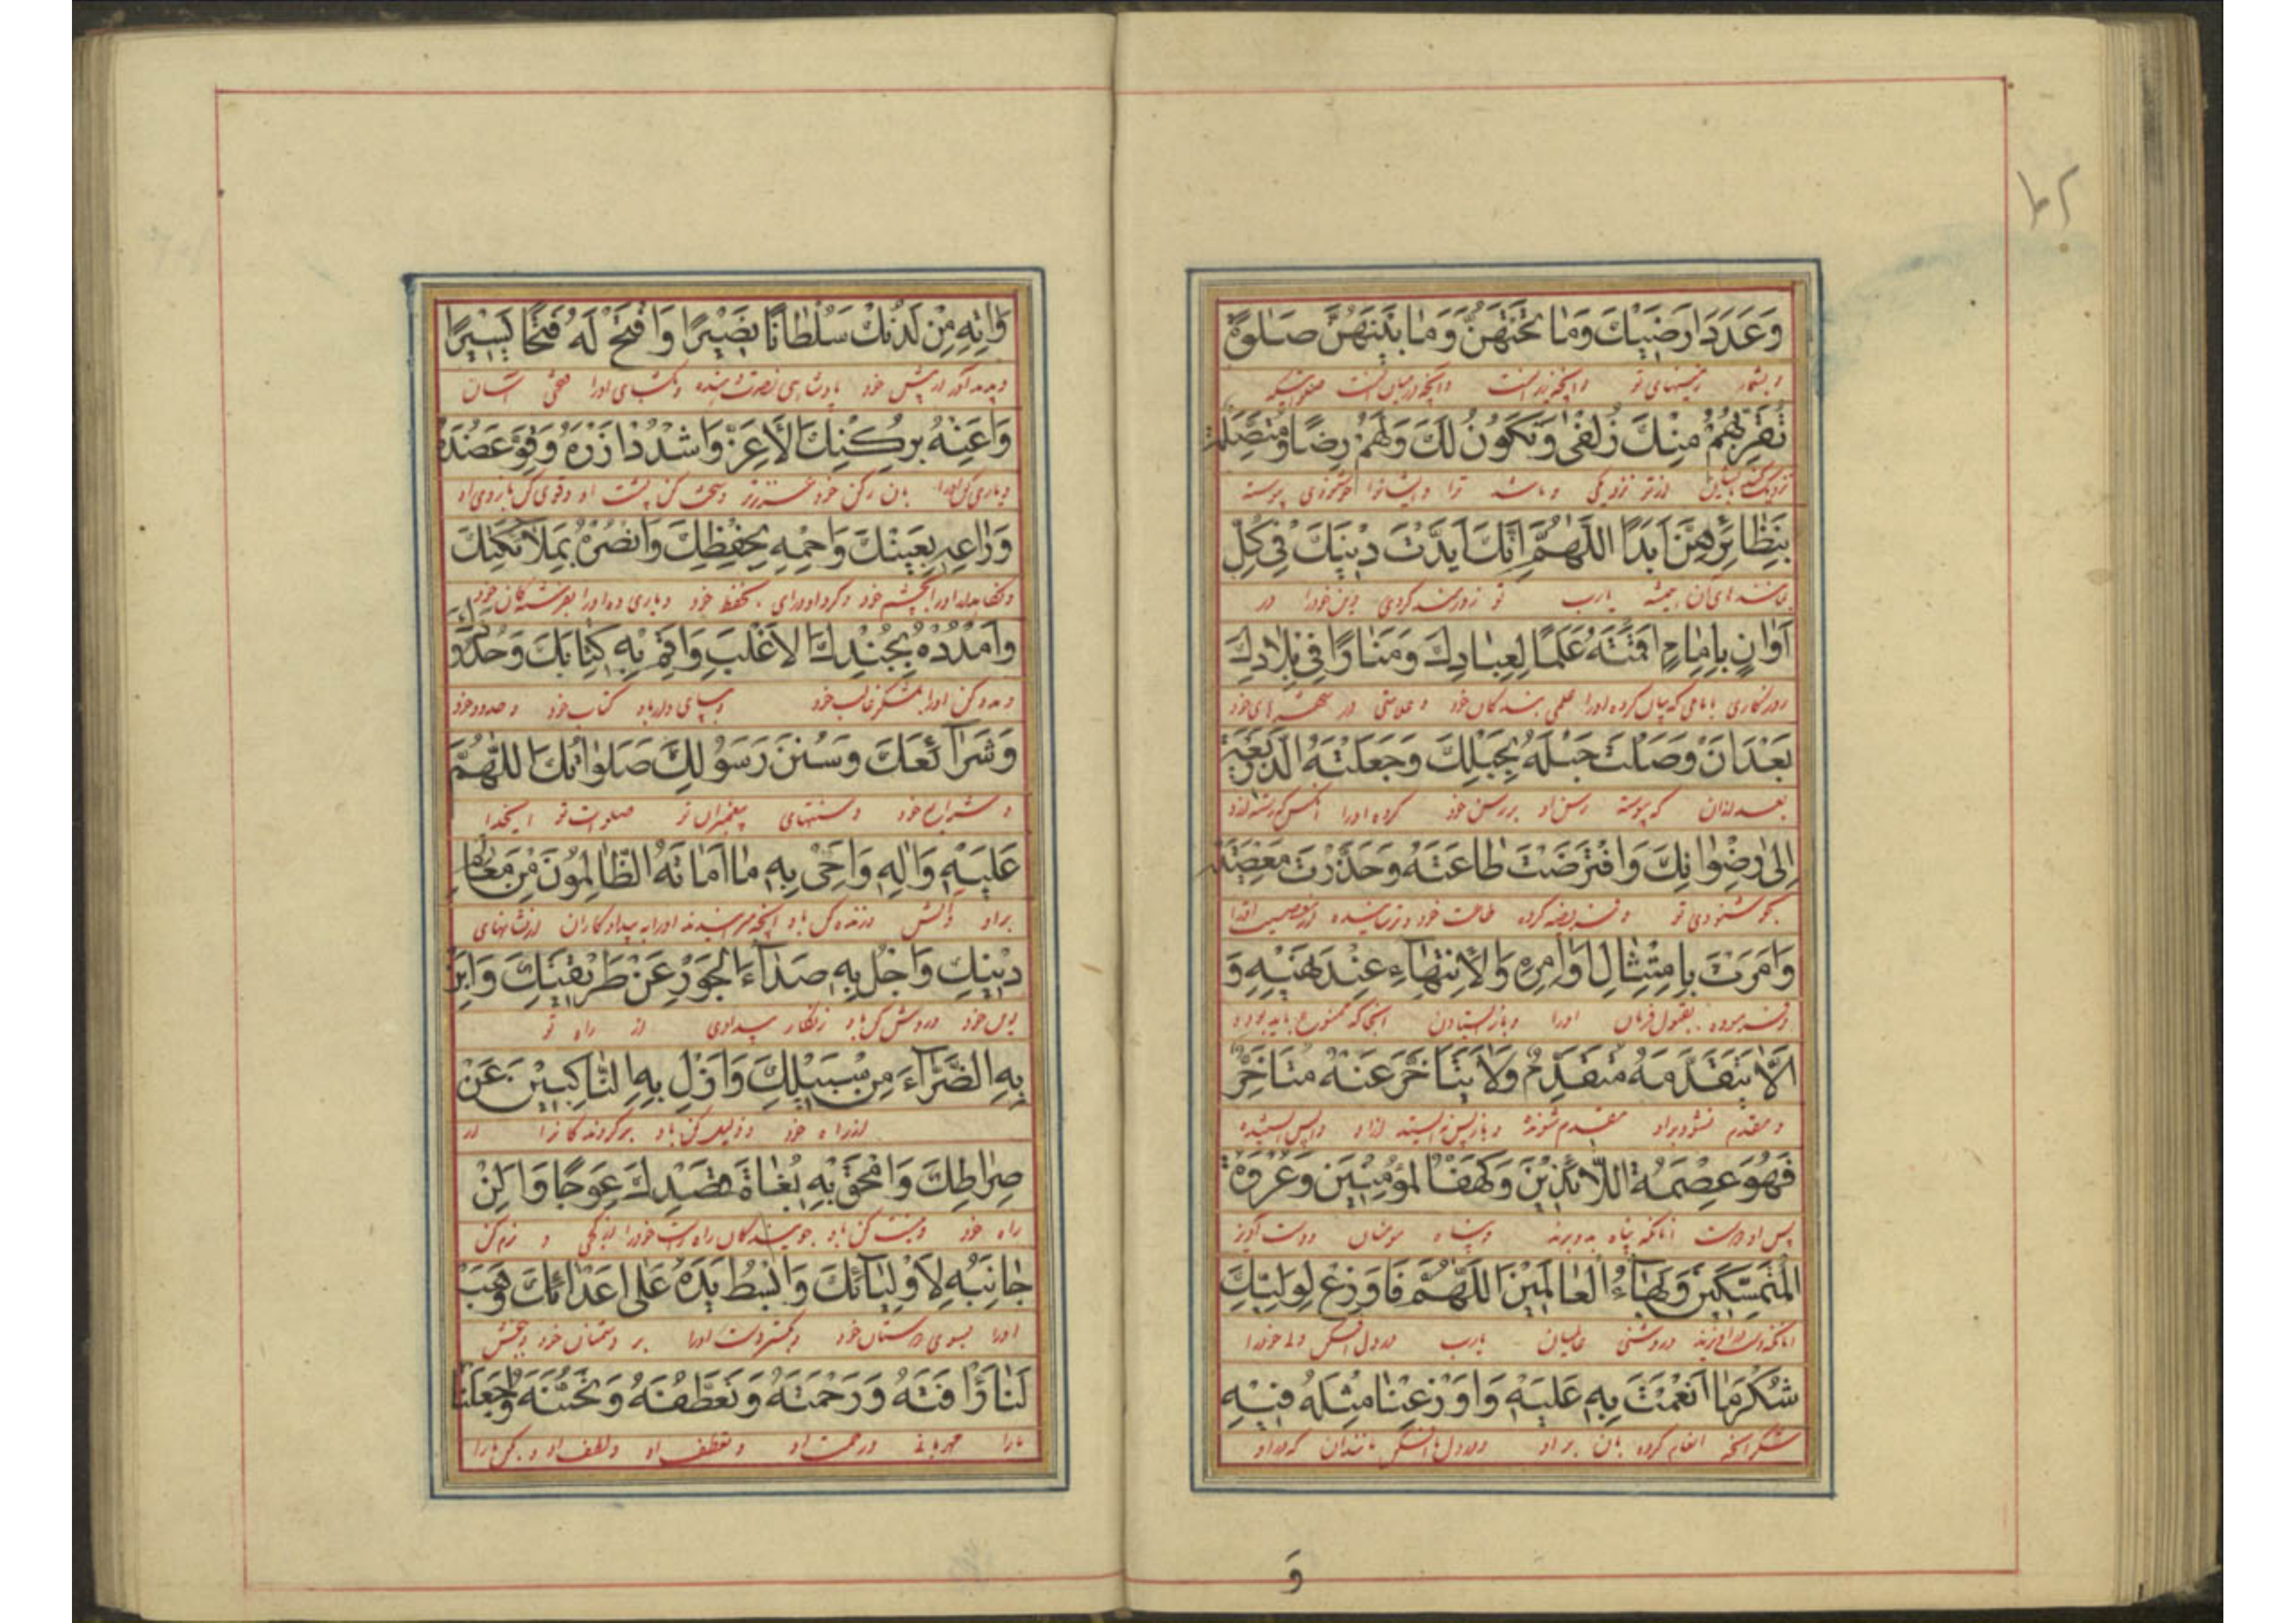 وَعَدَدَ اَرَضيٖكَ وَمٰا تَحْتَهُنَّ وَمٰا بَيْنَهُنَّ صَلوٰةً
وبشمار زمینهای تو وآنچه زیر آنست وآنچه در میان آنست صلواتیکه
تُقَرِّبُهُمْ مِنْكَ زُلْفىٰ وَتَكُونُ لَكَ وَلَهُمْ رِضًا وَمُتَّصِلَةً
از تو نزدیکی وباشد ترا وایشانرا خوشنودی پیوسته
بِنَظٰائِرِهِنَّ اَبَدًا اَللّٰهُمَّ اِنَّكَ اَيَّدْتَ دٖينَكَ فٖى كُلِّ
بمانندهای آن همیشه یارب تو زورمند کردی دین خودرا در
اَوٰانٍ بِاِمٰامٍ اَقَمْتَهُ عَلَمًا لِعِبٰادِكَ وَمَنٰارًا فٖى بِلاٰدِكَ
روزگاری بامامی که بپای کرده اورا علمی بندکان خود وعلامتی در شهرهای خود
بَعْدَ اَنْ وَصَلْتَ حَبْلَهُ بِحَبْلِكَ وَجَعَلْتَهُ الذَّرٖيعَةَ
بعد از آن که پیوسته رسن او برسن خود کرده اورا
اِلىٰ رِضْوٰانِكَ وَافْتَرَضْتَ طٰاعَتَهُ وَحَذَّرْتَ مَعْصِيَتَهُ
بخوشنودی تو وفریضه کرده طاعت خود وترسانیده از معصیت
وَاَمَرْتَ بِامْتِثٰالِ اَوٰامِرِهٖ وَالْاِنْتِهٰاءِ عِنْدَ نَهْيِهٖ وَ
وفرموده بقبول فرمان اورا وباز ایستادن
اَلّٰا يَتَقَدَّمَهُ مُتَقَدِّمٌ وَلاٰ يَتَاَخَّرَ عَنْهُ مُتَاَخِّرٌ
ومقدم نشود براو مقدم شونده وباز پس نه ایستد از او واپس ایستنده
فَهُوَ عِصْمَةُ اللاّٰئِذٖينَ وَكَهْفُ الْمُؤْمِنٖينَ وَعُرْوَةُ
پس او است آنانکه پناه بدو برند وپناه مومنان ودست آویز
الْمُتَمَسِّكٖينَ وَبَهٰاءُ الْعٰالَمٖينَ اَللّٰهُمَّ فَاَوْزِعْ لِوَلِيِّكَ
وروشنی عالمیان یارب در دل افکن ولی خودرا
شُكْرَ مٰا اَنْعَمْتَ بِهٖ عَلَيْهِ وَاَوْزِعْنٰا مِثْلَهُ فٖيهِ
شکر آنچه انعام کرده بآن بر او ودر دل ما افکن مانند آن که در او
وَ
وَاٰتِهٖ مِنْ لَدُنْكَ سُلْطٰانًا نَصٖيرًا وَافْتَحْ لَهُ فَتْحًا يَسٖيرًا
وبده اورا از پیش خود پادشاهی نصرت دهنده وبگشای اورا فتحی آسان
وَاَعِنْهُ بِرُكْنِكَ الْاَعَزِّ وَاشْدُدْ اَزْرَهُ وَقَوِّ عَضُدَهُ
ویاری کن اورا بآن رکن خود عزیزتر وسخت کن پشت او وقوی کن بازوی او
وَرٰاعِهٖ بِعَيْنِكَ وَاحْمِهٖ بِحِفْظِكَ وَانْصُرْهُ بِمَلاٰئِكَتِكَ
ونگاهدار اورا بچشم خود بحفظ خود ویاری ده اورا بفرشتگان خود
وَامْدُدْهُ بِجُنْدِكَ الْاَغْلَبِ وَاَقِمْ بِهٖ كِتٰابَكَ وَحُدُودَكَ
ومدد کن اورا بلشکر غالب خود وبپای دار باو کتاب خود وحدود خود
وَشَرٰائِعَكَ وَسُنَنَ رَسُولِكَ صَلَوٰاتُكَ اللّٰهُمَّ
وشرایع خود وسنتهای پیغمبران تو صلوات تو ایخدا
عَلَيْهِ وَاٰلِهٖ وَاَحْىِ بِهٖ مٰا اَمٰاتَهُ الظّٰالِمُونَ مِنْ مَعٰالِمِ
براو وآلش وزنده کن باو آنچه میرانیدند اورا بیدادکاران از نشانهای
دٖينِكَ وَاجْلُ بِهٖ صَدٰآءَ الْجَوْرِ عَنْ طَرٖيقَتِكَ وَاَبِنْ
دین خود وروشن کن باو زنگار بیدادی از راه تو
بِهِ الضَّرّٰآءَ مِنْ سَبٖيلِكَ وَاَزِلْ بِهِ النّٰاكِبٖينَ عَنْ
از راه خود وزایل کن باو برگردندکانرا از
صِرٰاطِكَ وَامْحَقْ بِهٖ بُغٰاةَ قَصْدِكَ عِوَجًا وَاَلِنْ
راه خود ونیست کن باو جویندکان راه راست خودرا بکجی و نرم کن
جٰانِبَهُ لِاَوْلِيٰآئِكَ وَابْسُطْ يَدَهُ عَلىٰ اَعْدٰائِكَ وَهَبْ
اورا بسوی دوستان خود وبگستر دست اورا بر دشمنان خود وببخش
لَنٰا رَاْفَتَهُ وَرَحْمَتَهُ وَتَعَطُّفَهُ وَتَحَنُّنَهُ وَاجْعَلْنٰا
مارا مهربانی ورحمت او وتعطف او ولطف او وبکن مارا